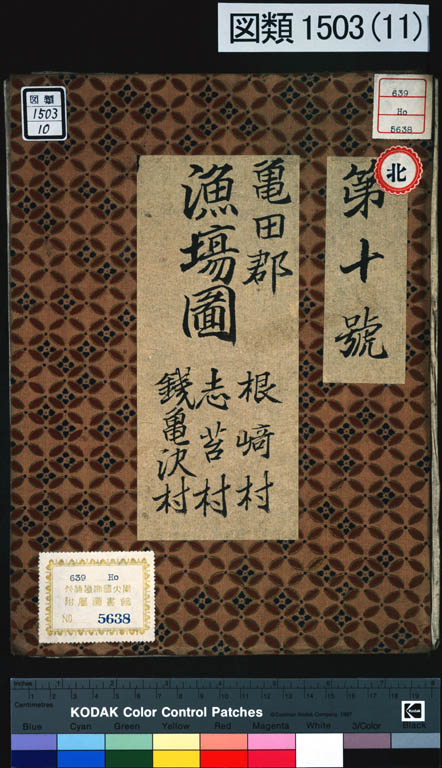 図類 1503(11)
図類
1503
10
639
Ho
5638
北
第十號
亀田郡
漁塲圖
根﨑村
志苔村
銭亀沢村
639 Ho
附屬圖書館
NO. 5638
Inches
Centimetres
KODAK Color Control Patches
©Eastman Kodak Company, 1997
Kodak
Blue Cyan Green Yellow Red Magenta White 3/Color Black